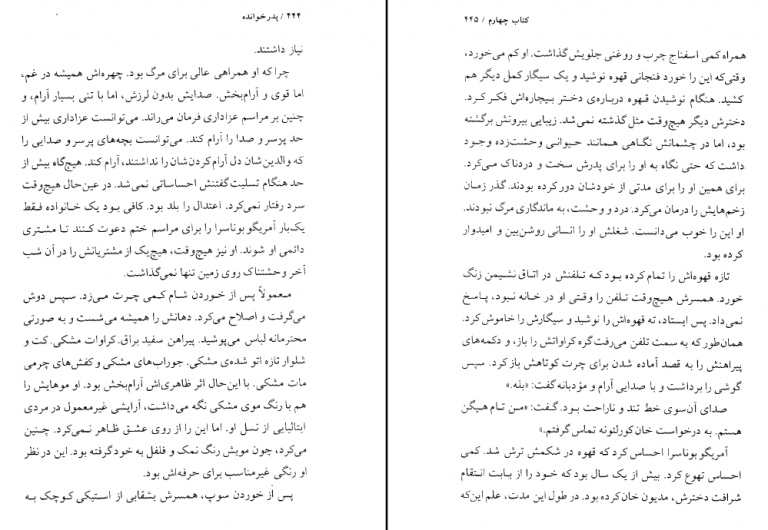 ۴۴۴ / پدرخوانده
نیاز داشتند.
چرا که او همراهی عالی برای مرگ بود. چهره‌اش همیشه در غم،
اما قوی و آرام‌بخش. صدایش بدون لرزش، اما با تنی بسیار آرام، و
چنین بر مراسم عزاداری فرمان می‌راند. می‌توانست عزاداری بیش از
حد پرسر و صدا را آرام کند. می‌توانست بچه‌های پرسر و صدایی را
که والدین‌شان دل آرام کردن‌شان را نداشتند، آرام کند. هیچ‌گاه بیش از
حد هنگام تسلیت گفتنش احساساتی نمی‌شد. در عین‌حال هیچ‌وقت
سرد رفتار نمی‌کرد. اعتدال را بلد بود. کافی بود یک خانواده فقط
یک‌بار آمریگو بوناسرا را برای مراسم ختم دعوت کنند تا مشتری
دائمی او شوند. او نیز هیچ‌وقت، هیچ‌یک از مشتریانش را در آن شب
آخر وحشتناک روی زمین تنها نمی‌گذاشت.
معمولاً پس از خوردن شام کمی چرت می‌زد. سپس دوش
می‌گرفت و اصلاح می‌کرد. دهانش را همیشه می‌شست و به صورتی
محترمانه لباس می‌پوشید. پیراهن سفید براق. کراوات مشکی. کت و
شلوار تازه اتو شده‌ی مشکی. جوراب‌های مشکی و کفش‌های چرمی
مات مشکی. با این‌حال اثر ظاهری‌اش آرام‌بخش بود. او موهایش را
هم با رنگ موی مشکی نگه می‌داشت، آرایشی غیرمعمول در مردی
ایتالیایی از نسل او. اما این را از روی عشق ظاهر نمی‌کرد. چنین
می‌کرد، چون مویش رنگ نمک و فلفل به خود گرفته بود. این در نظر
او رنگی غیرمناسب برای حرفه‌اش بود.
پس از خوردن سوپ، همسرش بشقابی از استیکی کوچک به
کتاب چهارم / ۴۴۵
همراه کمی اسفناج چرب و روغنی جلویش گذاشت. او کم می‌خورد،
وقتی که این را خورد فنجانی قهوه نوشید و یک سیگار کمل دیگر هم
کشید. هنگام نوشیدن قهوه درباره‌ی دختر بیچاره‌اش فکر کرد.
دخترش دیگر هیچ‌وقت مثل گذشته نمی‌شد. زیبایی بیرونش برگشته
بود، اما در چشمانش نگاهی همانند حیوانی وحشت‌زده وجود
داشت که حتی نگاه به او را برای پدرش سخت و دردناک می‌کرد.
برای همین او را برای مدتی از خودشان دور کرده بودند. گذر زمان
زخم‌هایش را درمان می‌کرد. درد و وحشت، به ماندگاری مرگ نبودند.
او این را خوب می‌دانست. شغلش او را انسانی روشن‌بین و امیدوار
کرده بود.
تازه قهوه‌اش را تمام کرده بود که تلفنش در اتاق نشیمن زنگ
خورد. همسرش هیچ‌وقت تلفن را وقتی او در خانه نبود، پاسخ
نمی‌داد. پس ایستاد، ته قهوه‌اش را نوشید و سیگارش را خاموش کرد.
همان‌طور که به سمت تلفن می‌رفت گره کراواتش را باز، و دکمه‌های
پیراهنش را به قصد آماده شدن برای چرت کوتاهش باز کرد. سپس
گوشی را برداشت و با صدایی آرام و مؤدبانه گفت: «بله.»
صدای آن‌سوی خط تند و ناراحت بود. گفت: «من تام هیگن
هستم. به درخواست خان کورلئونه تماس گرفتم.»
آمریگو بوناسرا احساس کرد که قهوه در شکمش ترش شد. کمی
احساس تهوع کرد. بیش از یک سال بود که خود را از بابت انتقام
شرافت دخترش، مدیون خان کرده بود. در طول این مدت، علم این‌که